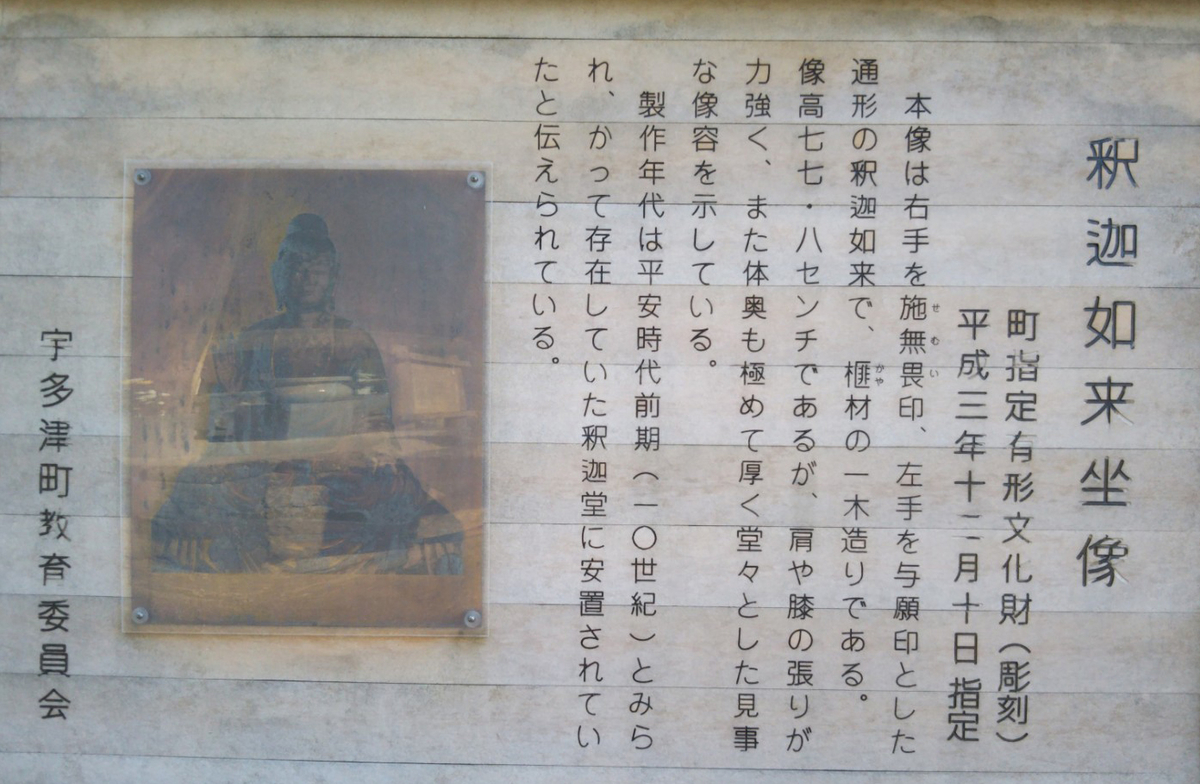 釈迦如来坐像
町指定有形文化財(彫刻)
平成三年十二月十日指定
本像は右手を施無畏印、左手を与願印とした
せむい
通形の釈迦如来で、榧材の一木造りである。
かや
像高七七・八センチであるが、肩や膝の張りが
力強く、また体奥も極めて厚く堂々とした見事
な像容を示している。
製作年代は平安時代前期(一〇世紀)とみら
れ、かって存在していた釈迦堂に安置されてい
たと伝えられている。
宇多津町教育委員会